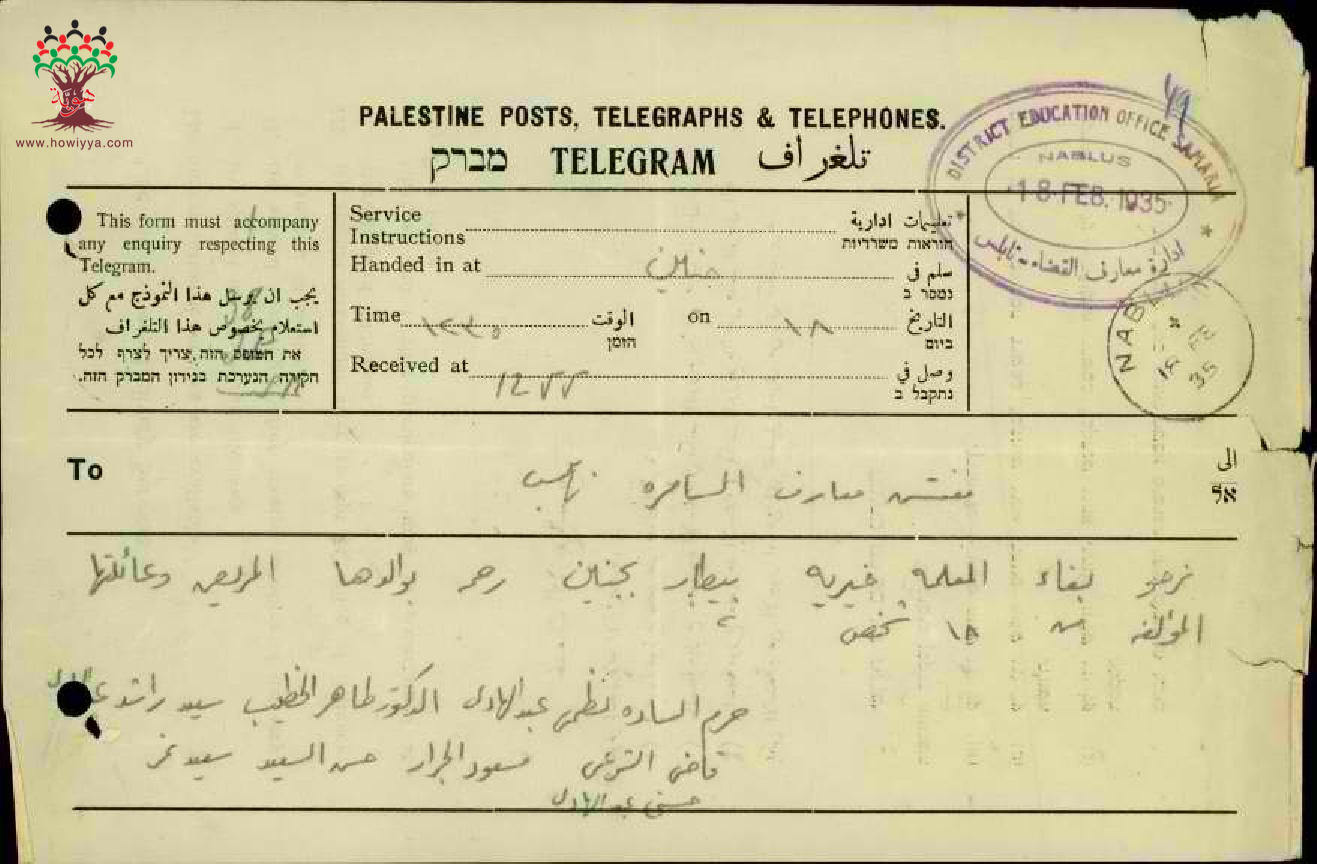 هوية
www.howiyya.com
PALESTINE POSTS, TELEGRAPHS & TELEPHONES.
מברק TELEGRAM تلغراف
49
DISTRICT EDUCATION OFFICE SAMARIA
NABLUS
18 FEB. 1935
ادارة معارف القضاء - نابلس
This form must accompany
any enquiry respecting this
Telegram.
يجب ان يرسل هذا النموذج مع كل
استعلام بخصوص هذا التلغراف
את הטופס הזה צריך לצרף לכל
חקירה הנערכת בנידון המברק הזה.
Service
Instructions
تعليمات ادارية
הוראות משרדיות
Handed in at جنين سلم في
נמסר ב
Time ١٢٣٥ الوقت on ١٨ التاريخ
הזמן ביום
Received at 1255 وصل في
נתקבל ב
NABLUS
18 FE
35
To الى
אל
مفتش معارف السامره نابلس
نرجو بقاء المعلمه خيريه بيطار بجنين رحمه بوالدها المريض وعائلتها
المؤلفه من ١٨ شخص
حرم الساده نظمي عبد الهادي الدكتور طاهر الخطيب سيد راشد
قاضي الشرعي مسعود الجرار حسن السيد سعيد
حسني عبد الهادي